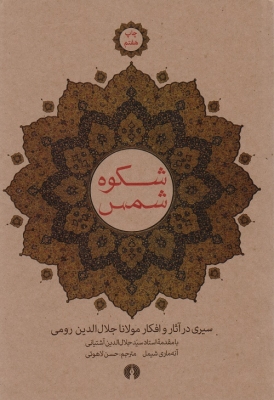 چاپ
هفتم
شکوه
شمس
سیری در آثار و افکار مولانا جلال‌الدین رومی
با مقدمهٔ استاد سیّد جلال‌الدین آشتیانی
آنه‌ماری شیمل مترجم: حسن لاهوتی